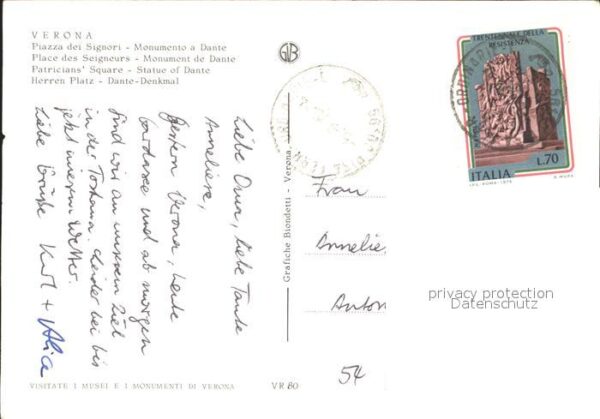 VERONA
Piazza dei Signori - Monumento a Dante
Place des Seigneurs - Monument de Dante
Patricians' Square - Statue of Dante
Herren Platz - Dante-Denkmal
Liebe Oma, liebe Tante
Anneliese,
Gestern Verona, heute
Gardasee und ab morgen
sind wir an unserem Ziel
in der Toskana. Leider bei bis
jetzt miesem Wetter.
Liebe Grüße Kurt +
VISITATE I MUSEI E I MONUMENTI DI VERONA
VR 80
Grafiche Biondetti - Verona
GB
TRENTENNALE DELLA
RESISTENZA
L.70
ITALIA
Frau
Annelie
Anton
54
privacy protection
Datenschutz